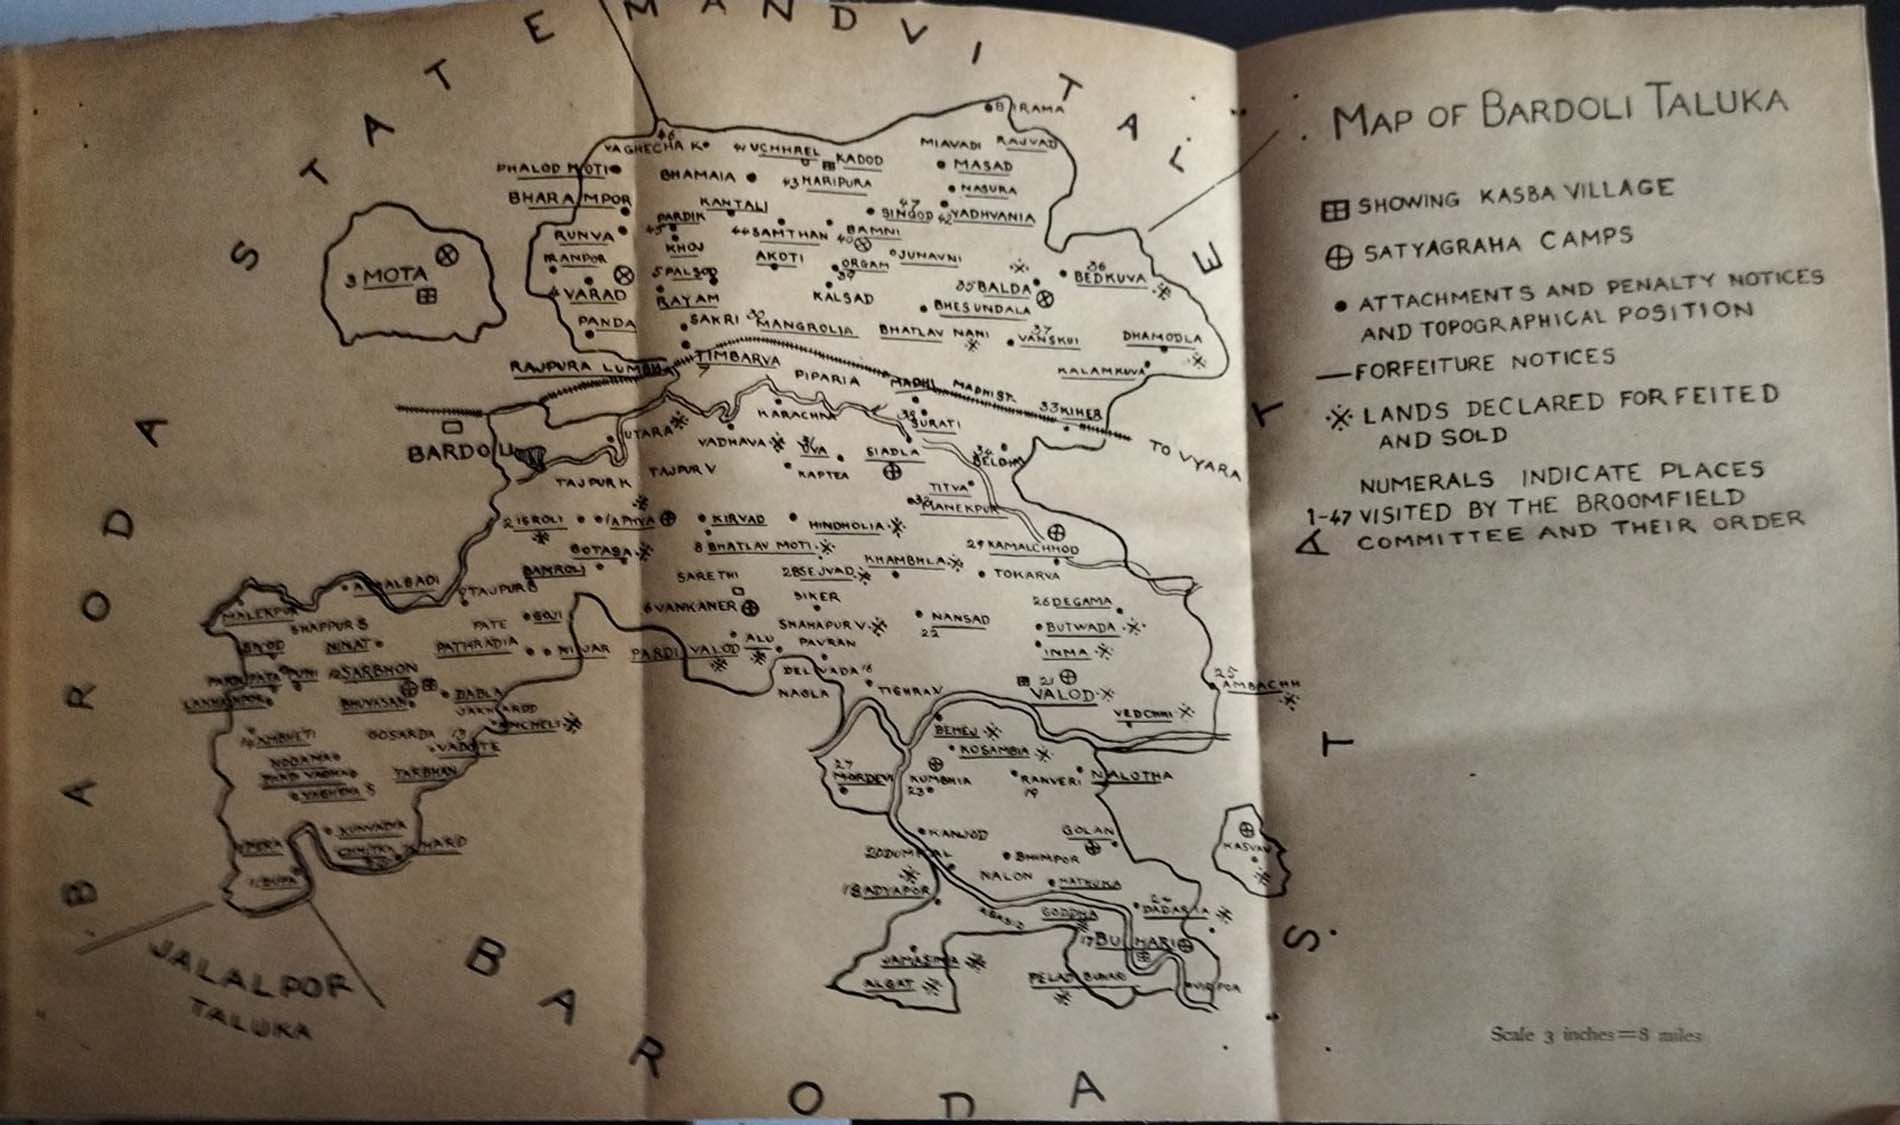 MANDVI TALUKA
BARODA STATE
BARODA STATE
MAP OF BARDOLI TALUKA
SHOWING KASBA VILLAGE
SATYAGRAHA CAMPS
ATTACHMENTS AND PENALTY NOTICES
AND TOPOGRAPHICAL POSITION
FORFEITURE NOTICES
LANDS DECLARED FORFEITED
AND SOLD
NUMERALS INDICATE PLACES
1-47 VISITED BY THE BROOMFIELD
COMMITTEE AND THEIR ORDER
Scale 3 inches=8 miles
JALALPOR
TALUKA
3 MOTA
BARDOLI
46
VAGHECHA K
UCHHREL
KADOD
MIAVADI
RAJVAD
PHALOD MOTI
BHAMAIA
43 HARIPURA
MASAD
NASURA
BHARAMPOR
KANTALI
PARDIK
45
47
SINGOD
42 VADHVANIA
RUNVA
KHOJ
44 SAMTHAN
BAMNI
40
AKOTI
ORGAM
39
JUNAVNI
5 PALSOD
VARAD
RAYAM
KALSAD
35 BALDA
36
BEDKUVA
BHESUNDALA
PANDA
SAKRI
30
MANGROLIA
BHATLAV NANI
37
VANSKUI
DHAMODLA
RAJPURA LUMBHA
TIMBARVA
7
PIPARIA
MADHI
MADHI ST.
KALAMKUVA
33 KIKER
TO VYARA
KARACHKA
SURATI
UTARA
VADHAVA
UVA
SIADLA
TAJPUR K
TAJPUR V
KAPTEA
TITVA
MANEKPUR
2 ISROLI
KIRVAD
HINDHOLIA
8 BHATLAV MOTI
29 KAMALCHHOD
BAMROLI
SARETHI
28 SEJVAD
KHAMBHLA
TOKARVA
TAJPUR B
SIKER
6 VANKANER
26 DEGAMA
MALEKPUR
SHAPPUR S
PATE
GOJI
SHAHAPUR V
NANSAD
22
BUTWADA
NINAT
PATHRADIA
NIJAR
PARDI VALOD
ALU
PAVRAN
INMA
12 SARBHON
DELVADA 16
NAOLA
TIGHRAV
21
VALOD
25
AMBACHH
BHUVASAN
DABLA
VEDCHHI
GOSARDA
13
VADOTE
TARBHAN
BEHEJ
KOSAMBIA
27
MORDEVI
KUMBHIA
23
RANVERI
19
NALOTHA
KUNVADIA
KANJOD
GOLAN
20 DUMKHAL
BHIMPOR
18 ADYAPOR
NALON
HATHUKA
24
GODDHA
17 BUHARI
ALGAT
PELAD BUHARI
VIRPOR
KASVAV